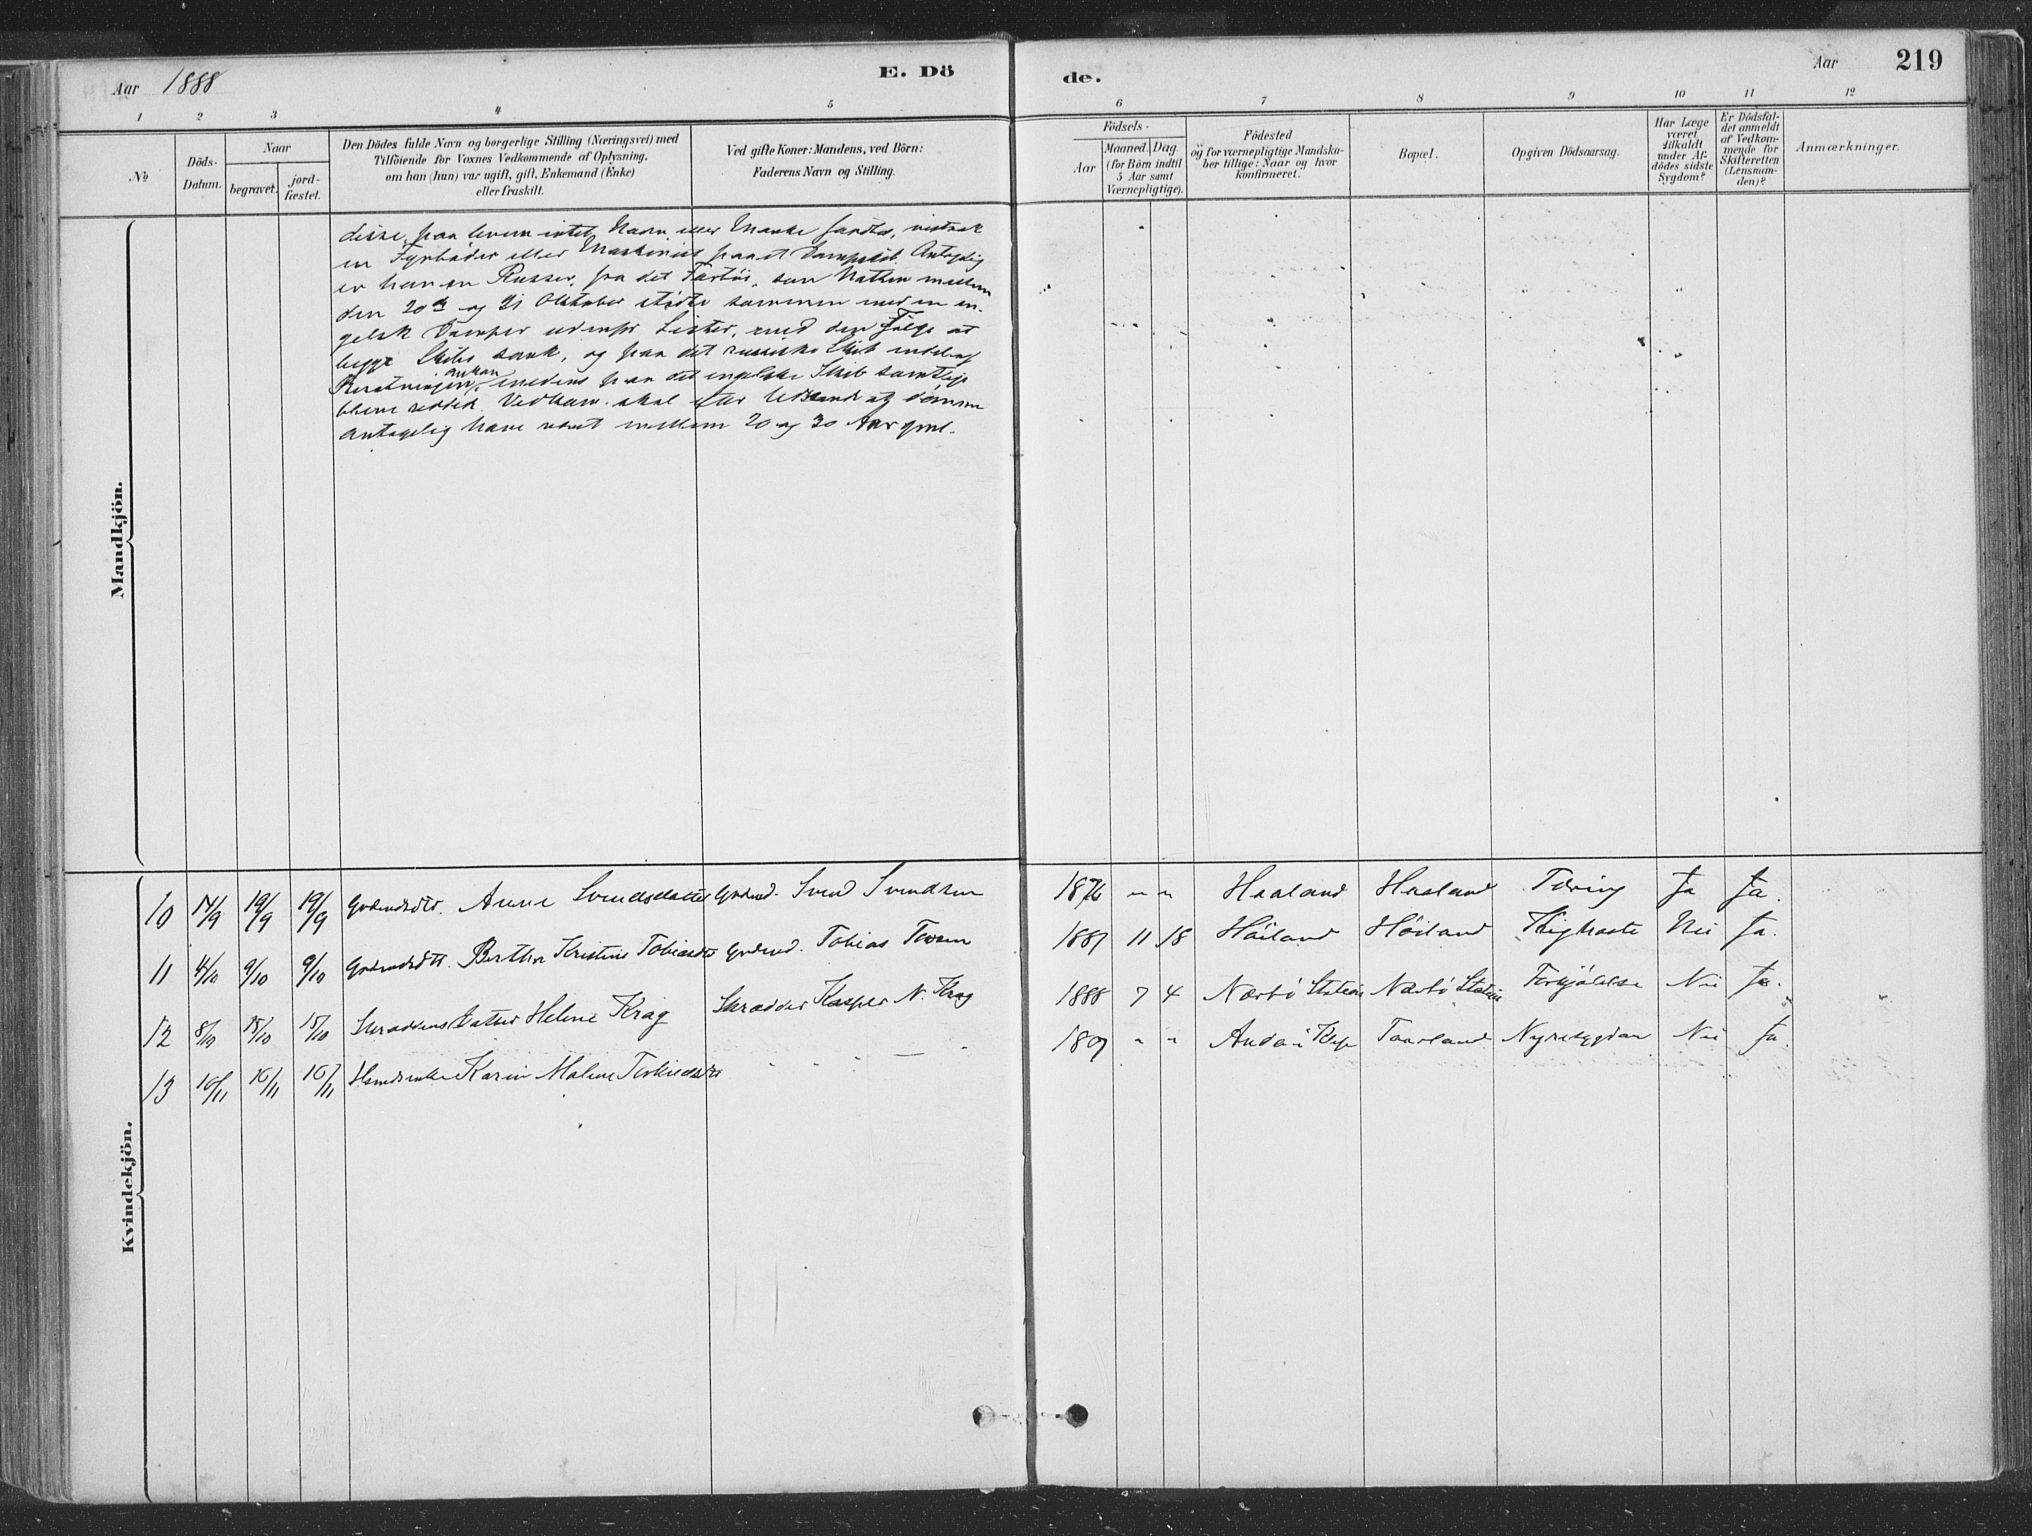 Aar 1888
E. Dö
de.
Aar
219
1 2 3 4 5 6 7 8 9 10 11 12
No
Döds-
Datum.
Naar
begravet.
jord-
fæstet.
Den Dödes fulde Navn og borgerlige Stilling (Næringsvei) med
Tilföiende for Voxnes Vedkommende af Oplysning,
om han (hun) var ugift, gift, Enkemand (Enke)
eller fraskilt.
Ved gifte Koner: Mandens, ved Börn:
Faderens Navn og Stilling.
Födsels-
Aar
Maaned. Dag.
(for Börn indtil
5 Aar samt
Værnepligtige).
Födested
og for værnepligtige Mandska-
ber tillige: Naar og hvor
konfirmeret.
Bopæl.
Opgiven Dödsaarsag.
Har Læge
været
tilkaldt
under Af-
dödes sidste
Sygdom?
Er Dödsfal-
det anmeldt
af Vedkom-
mende for
Skifteretten
(Lensman-
den)?
Anmærkninger.
Mandkjön.
disse, paa hvem intet Navn eller Mærke fandtes, vistnok
en Fyrböder eller Maskinist paa et Dampskib. Antagelig
er han en Russer, fra det Fartöi, som Natten mellem
den 20de og 21 Oktober stödte sammen med en en-
gelsk Damper udenfor Lister, med den Fölge at
begge Skibe sank, og paa det russiske Skib
Besætningen omkom, medens paa det engelske Skib samtlige
bleve reddet. Vedkom. skal efter Udseende at dömme
antagelig have været mellem 20 og 30 Aar gml.
Kvindekjön.
10 14/9 19/9 19/9 Grdmdsdtr. Anne Svendsdatter Grdmd. Svend Svendsen 1876 " " Haaland Haaland Tæring Ja Ja.
11 4/10 9/10 9/10 Grdmdsdtr. Berthe Kristine Tobiasdtr Grdmd. Tobias 1887 11 18 Höiland Höiland Kighoste Nei Ja.
12 8/10 15/10 15/10 Skrædders Datter Helene Krag Skrædder Kasper N. Krag 1888 7 4 Nærbö Station Nærbö Station Forkjölelse Nei Ja.
13 10/11 16/11 16/11 Karin Malene 180 " " Anda i Klep Taarland Nyresygdom Nei Ja.